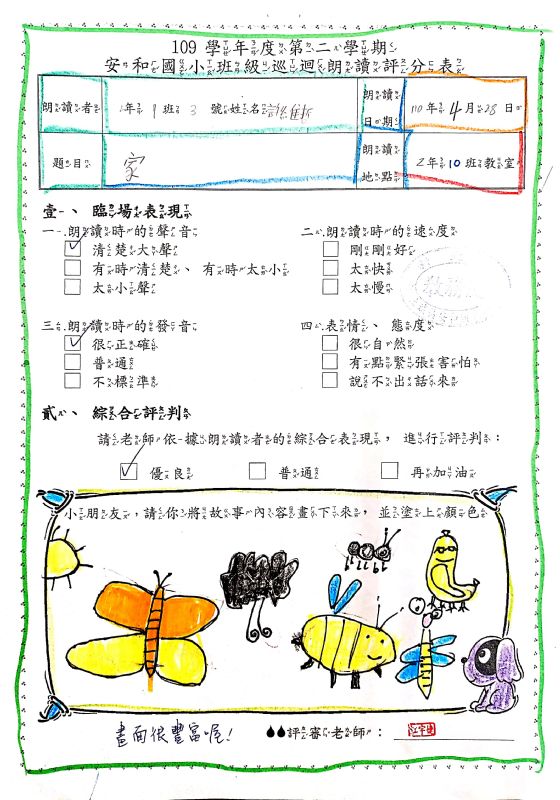 109 學年度第二學期
安和國小班級巡迴朗讀評分表
朗讀者 年 1 班 3 號姓名 朗讀日期 110 年 4 月 28 日
題目 家 朗讀地點 2 年 10 班教室
壹、臨場表現
一.朗讀時的聲音 二.朗讀時的速度
清楚大聲 剛剛好
有時清楚、有時太小 太快
太小聲 太慢
三.朗讀時的發音 四.表情、態度
很正確 很自然
普通 有點緊張害怕
不標準 說不出話來
貳、綜合評判
請老師依據朗讀者的綜合表現,進行評判:
優良 普通 再加油
小朋友,請你將故事內容畫下來,並塗上顏色
畫面很豐富喔! 評審老師: